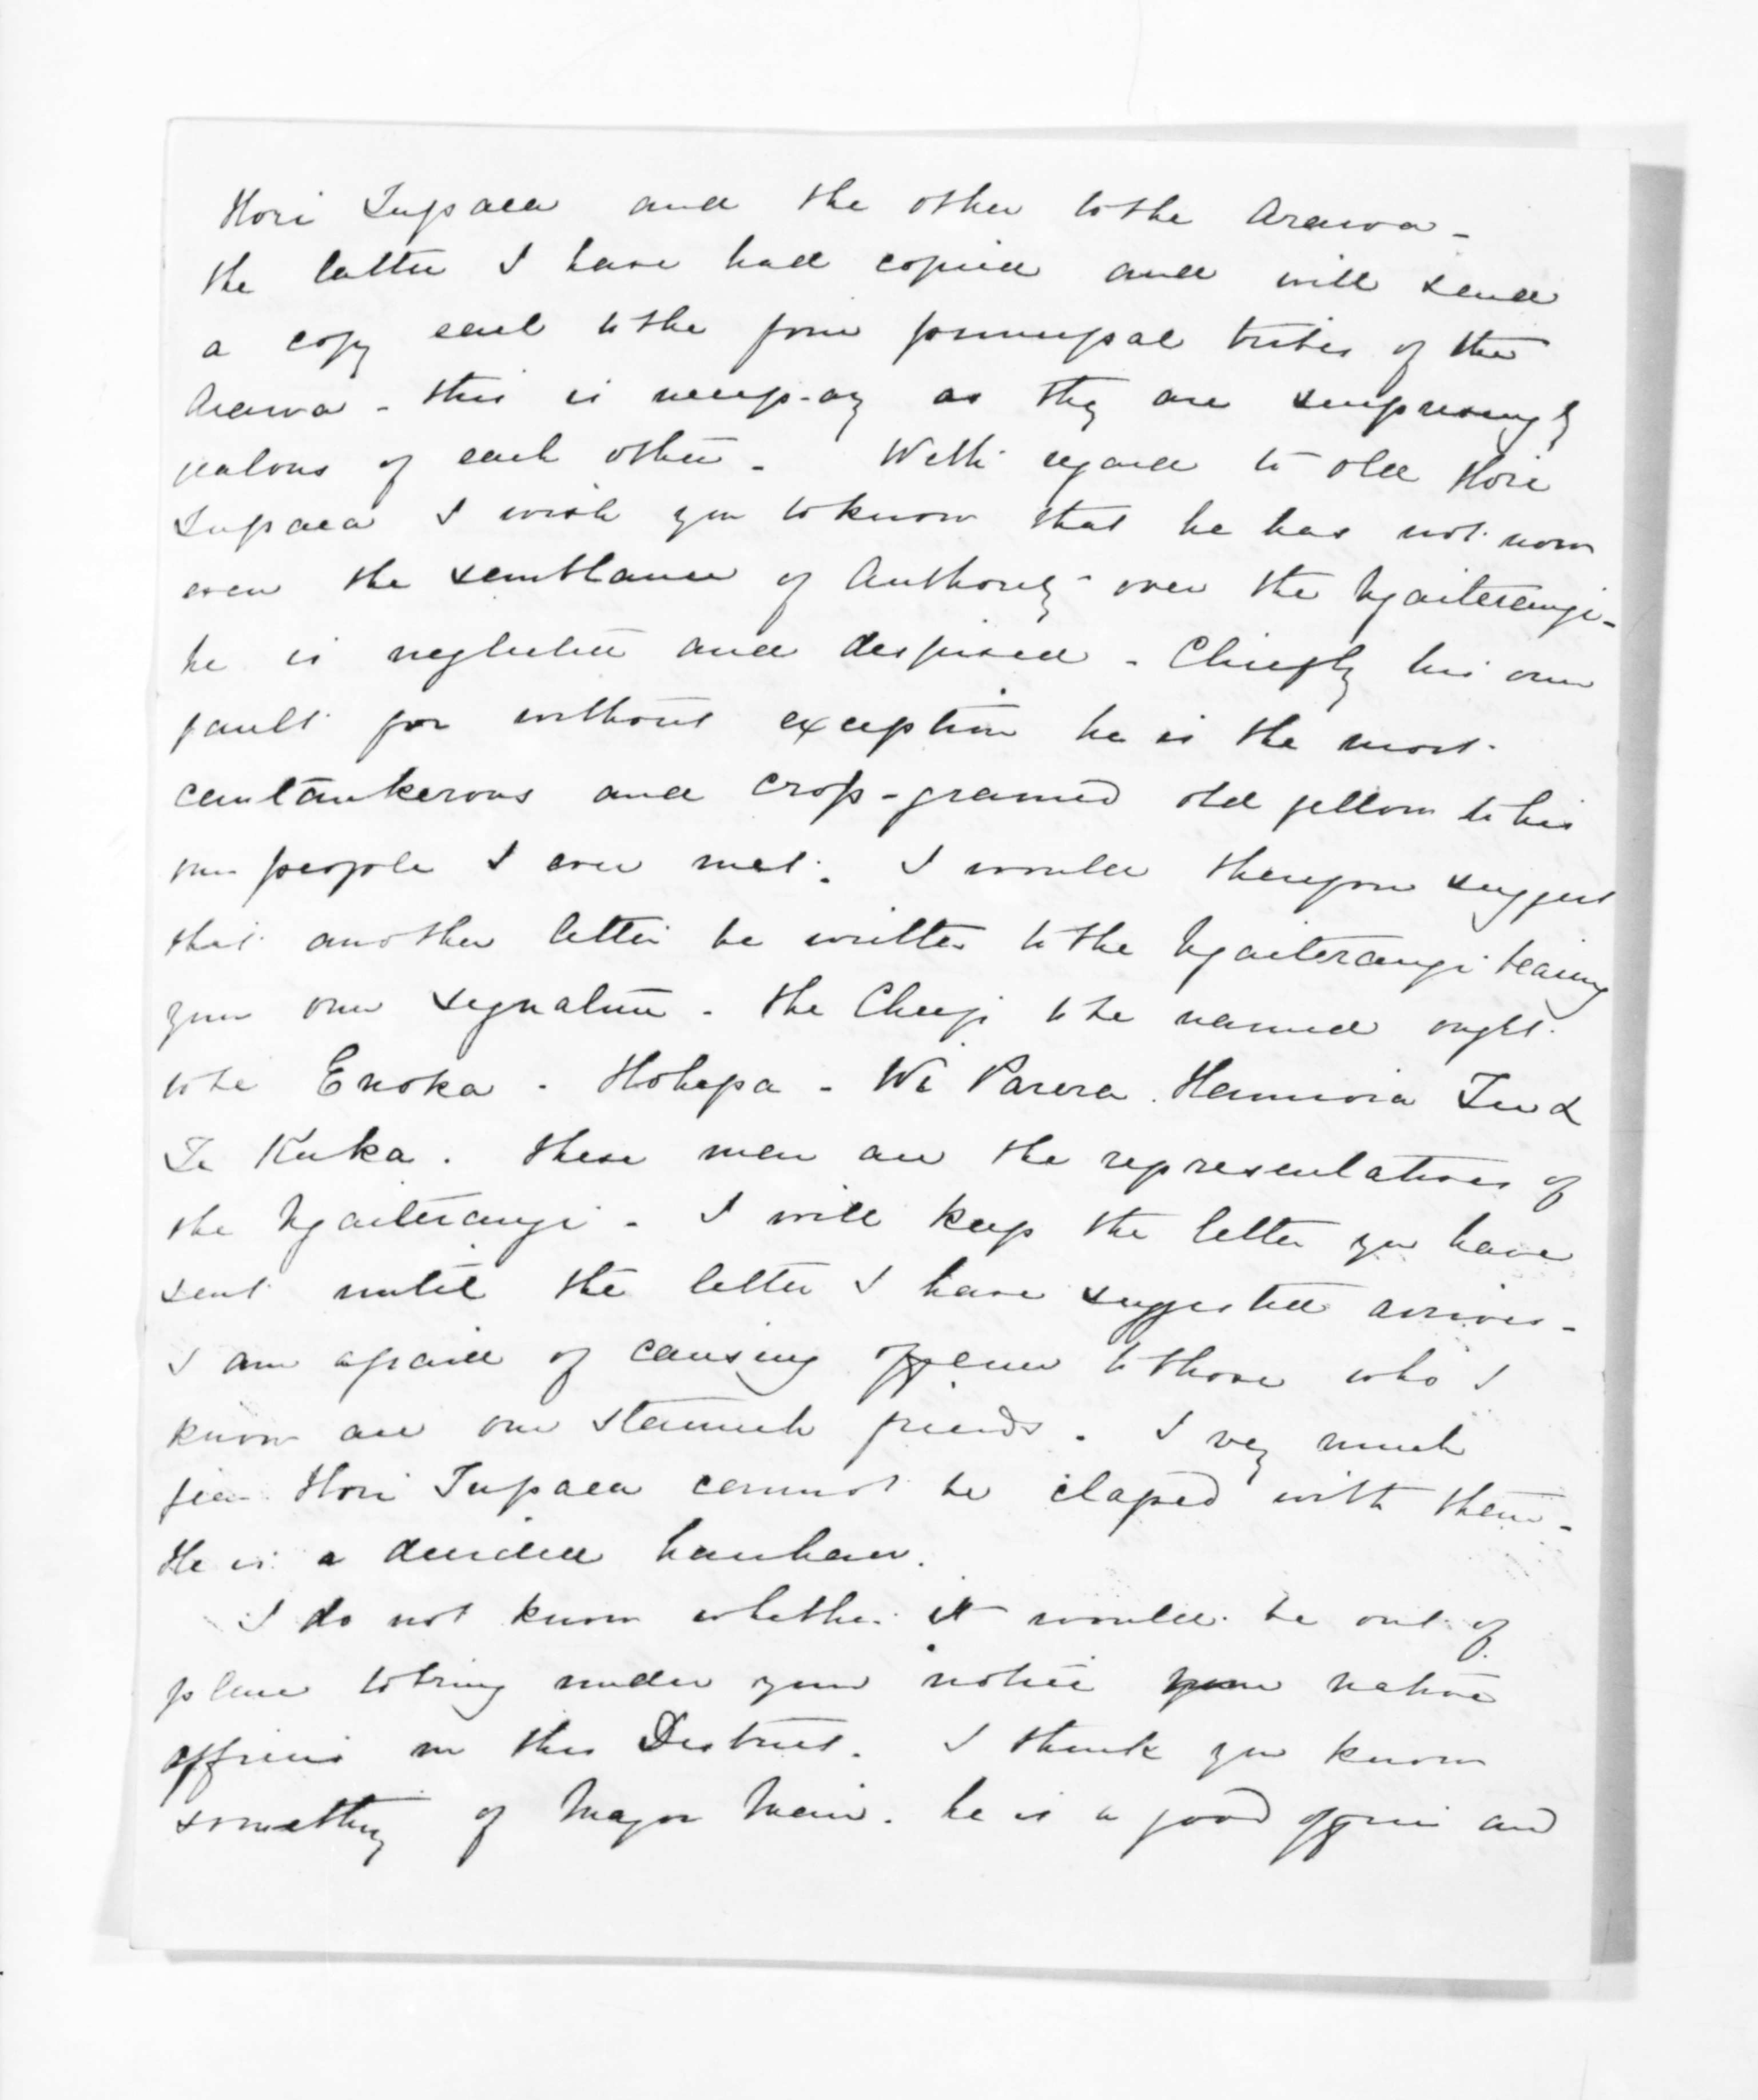 Hori Tupaea and the other to the Arawa -
the latter I have had copied and will send
a copy each to the four principal tribes of the
Arawa - this is necessary as they are surprisingly
jealous of each other - With regard to old Hori
Tupaea I wish you to know that he has not now
even the semblance of Authority over the Ngaiterangi -
he is neglected and despised - Chiefly his own
fault for without exception he is the most
cantankerous and cross-grained old fellow to his
own people I ever met. I would therefore suggest
that another letter be written to the Ngaiterangi bearing
your own signature - the Chiefs to be named ought
to be Enoka - Hohepa - Wi Parera Hamiora Tu &
Te Kuka. these men are the representatives of
the Ngaiterangi - I will keep the letter you have
sent until the letter I have suggested arrives -
I am afraid of causing offence to those who I
know are our staunch friends. I very much
fear Hori Tupaea cannot be classed with them -
He is a decided hauhau.
I do not know whether it would be out of
place to bring under your notice your native
officers in this District. I think you know
something of Major Mair. he is a good officer and